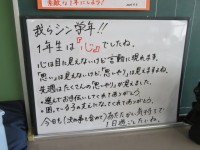 我らシン学年!!
1年生は『心』でしたね。
心は目に見えないけど言動に現れます。
「思い」は見えないけど「思いやり」は見えますよね。
先週はたくさんの「思いやり」が見えました。
・進んでお手伝いしてくれてありがとう。
てくれてありがとう。
今日も
1日過ごしたいね。